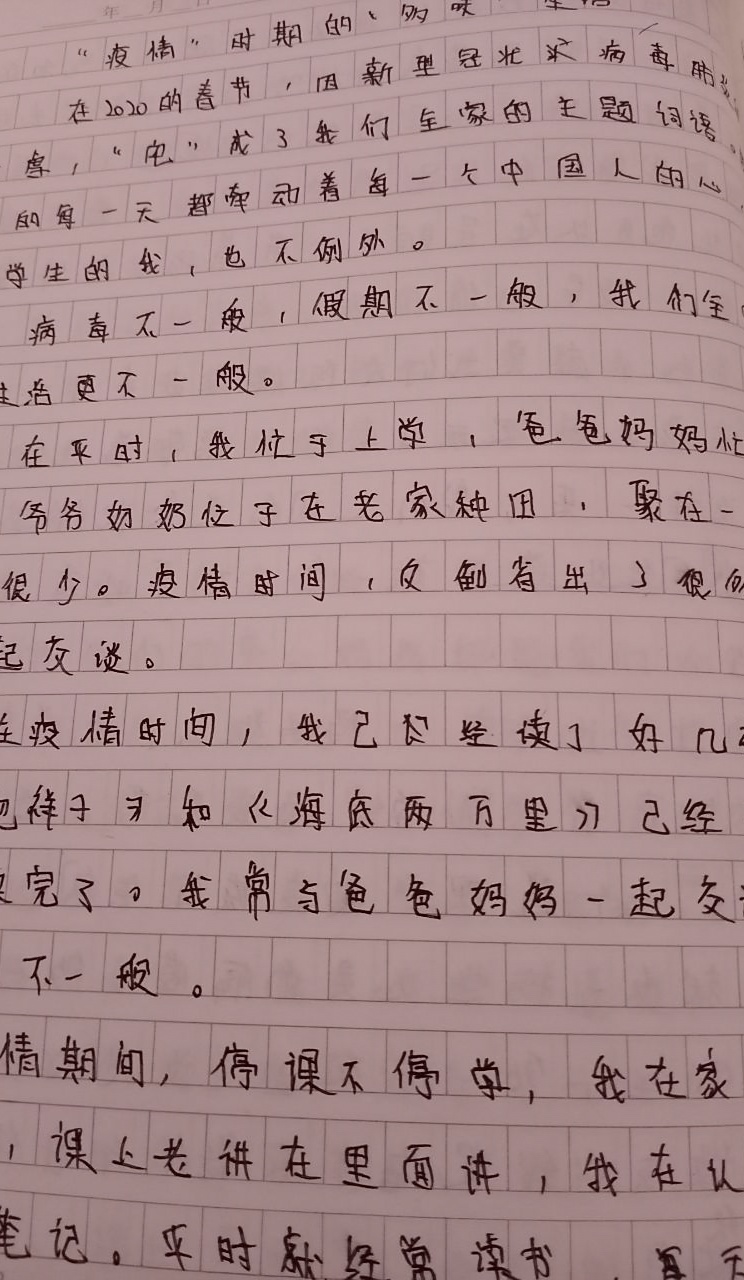 年 月
“疫情”时期的“多味 生活
在2020的春节，因新型冠状 病毒肺
虐，“宅”成了我们全家的主题词语。
的每一天都牵动着每一个中国人的心，
学生的我，也不例外。
病毒不一般，假期不一般，我们全
生活更不一般。
在平时，我忙于上学，爸爸妈妈忙
爷爷奶奶忙于在老家种田，聚在一
很少。疫情时间，反倒省出了很多
起交谈。
在疫情时间，我已 经读了好几
祥子》和《海底两万里》已经
完了。我常与爸爸妈妈一起交
不一般。
情期间，停课不停学，我在家
，课上老讲在里面讲，我在认
笔记。平时就经常读书